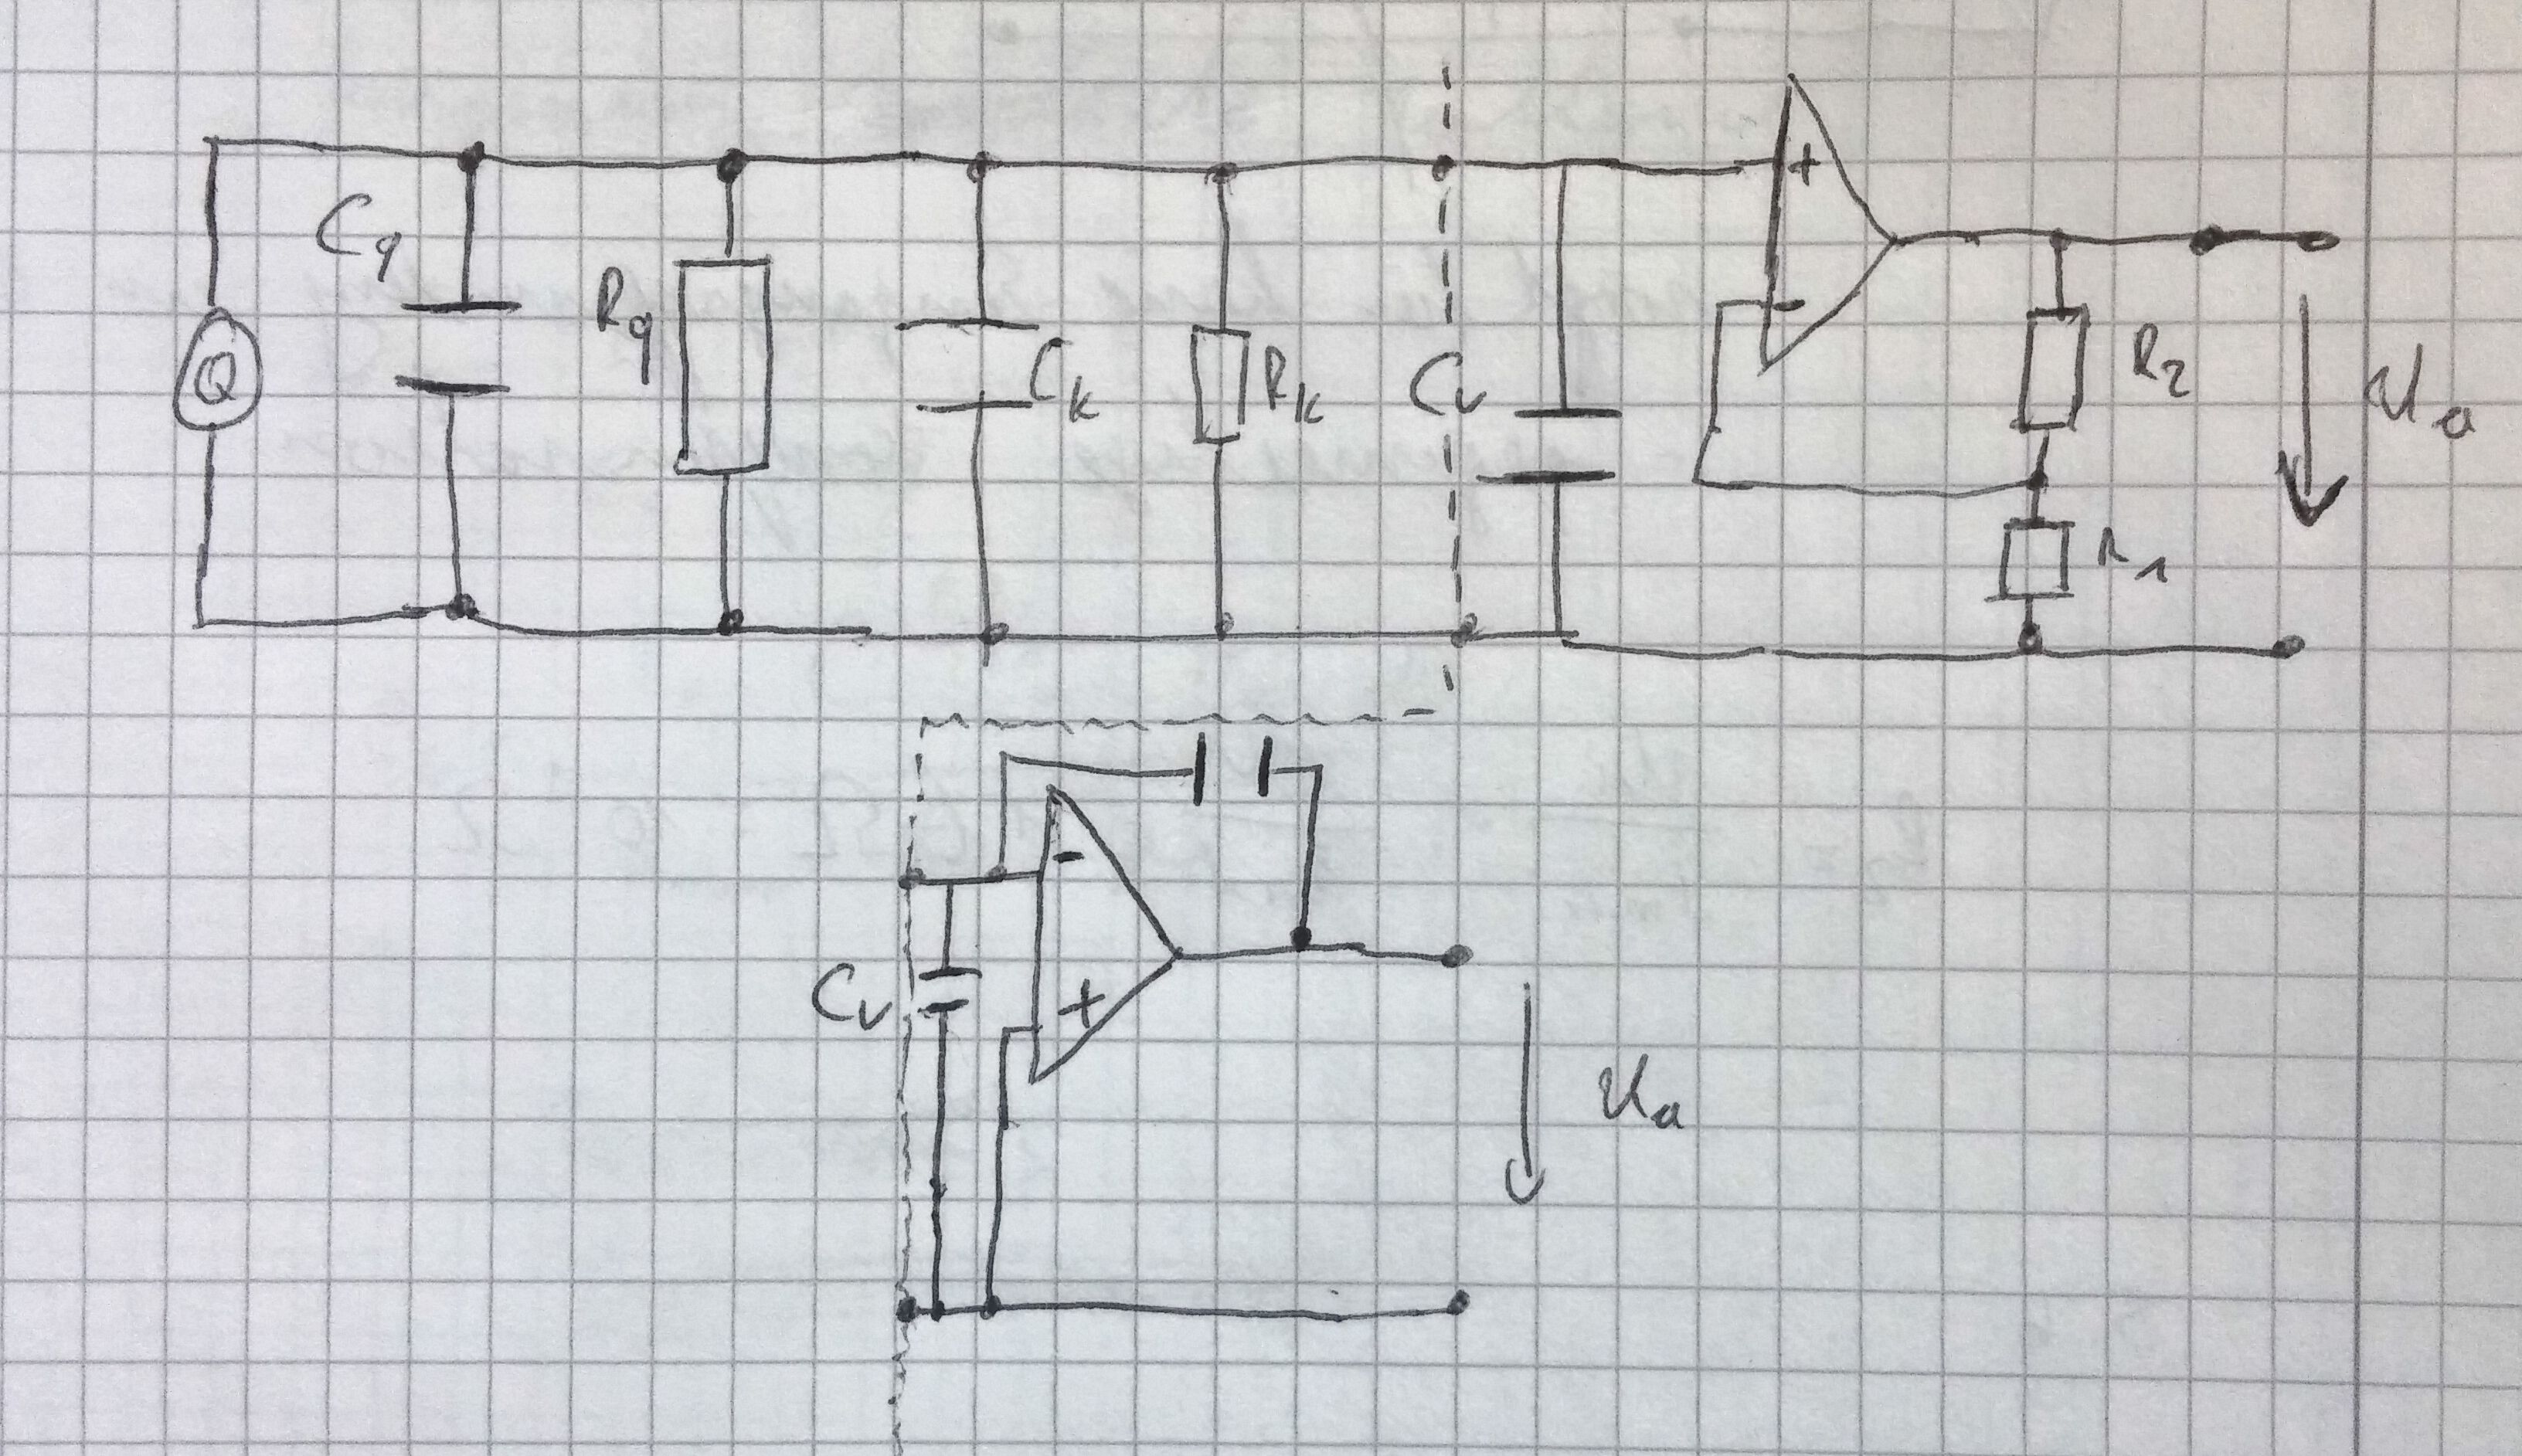 Q
Cq
Rq
Ck
Rk
Cv
+
-
R2
R1
Ua
-
+
Cv
Ua